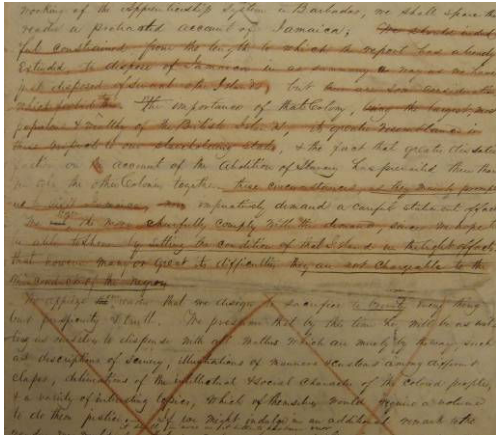 working of the apprenticeship system in Barbados, we shall spare the
reader a protracted account of Jamaica; We should indeed
feel constrained from the length to which the report has already
Extended, to dispose of Jamaica in as summary a way as we have
just disposed of several other Islands, but there are some considerations
which forbid it. The importance of that Colony, being the largest, most
populous & wealthy of the British Islands, its greater resemblance in
these respects to our slaveholding states, & the fact that greater dissatis
faction on account of the Abolition of Slavery has prevailed there than
in all the other Colonies together, these circumstances, as they mainly prompted
us to visit Jamaica, imperatively demand a careful statement of facts
We can the more cheerfully comply with this demand, since we hope
to show by setting the condition of that Island in the light of facts
that however many or great its difficulties they are not chargeable to the
the negroes
We apprize reader that we design to sacrifice to brevity every thing
but perspicuity & truth. We presume that by this time they will be as
as ourselves to dispense with all matters which are merely by the way, such
as descriptions of scenery, illustrations of manners & customs among different
classes, delineations of the intellectual & social character of the colored people,
& a variety of interesting topics, which of themselves would require a volume
to do them justice; if we might indulge in an additional remark